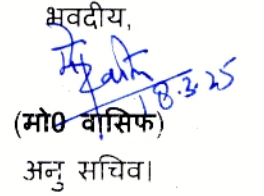 भवदीय,
18.3.25
(मो0 वासिफ)
अनु सचिव।